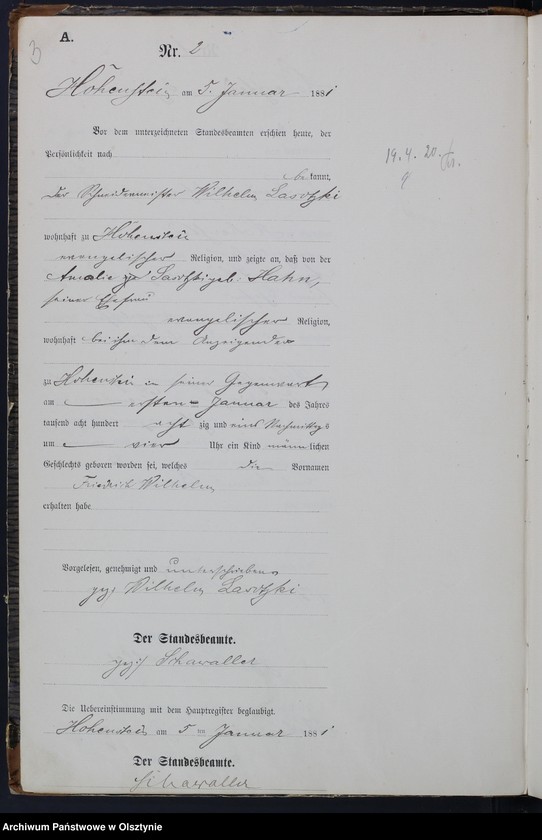 A.
3
Nr. 2
Hohenstein am 5. Januar 1881
Vor dem unterzeichneten Standesbeamten erschien heute, der
Persönlichkeit nach
be kannt,
Der Schneidermeister Wilhelm Lasotzki
wohnhaft zu Hohenstein
evangelischer Religion, und zeigte an, daß von der
Amalie Lasotzki geb. Hahn,
seiner Ehefrau
evangelischer Religion,
wohnhaft bei ihm dem Anzeigenden
zu Hohenstein in seiner Gegenwart
am ersten Januar des Jahres
tausend acht hundert acht zig und eins Nachmittags
um vier Uhr ein Kind männ lichen
Geschlechts geboren worden sei, welches die Vornamen
Friedrich Wilhelm
erhalten habe
Vorgelesen, genehmigt und unterschrieben
gez. Wilhelm Lasotzki
Der Standesbeamte.
gez. Schawaller
Die Uebereinstimmung mit dem Hauptregister beglaubigt.
Hohenstein am 5 ten Januar 1881
Der Standesbeamte.
Schawaller
19. 4. 20.
Archiwum Państwowe w Olsztynie